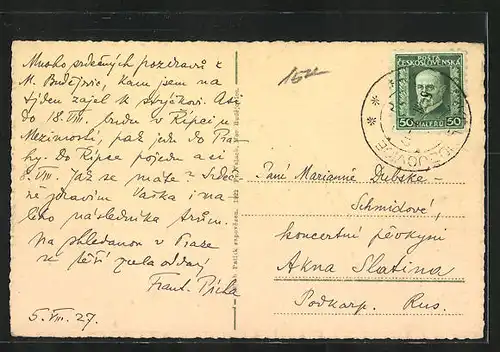 Mnoho srdečných pozdravů z
M. Budějovic, kam jsem na
týden zajel k strýčkovi. Asi
do 18. VIII. budu v Řípci u
Mezimostí, pak jedu do Pra-
hy. do Řípce pojedu asi
8. VIII. Jak se máte? Srdeč-
ně zdravím Vaška i na
něho následníka trůnu.
Na shledanou v Praze
se těší zcela oddaný
Frant.
5. VIII. 27.
POŠTA
ČESKOSLOVENSKÁ
50 HALÉŘŮ 50
Paní Marianně Dubské-
Schmidové,
koncertní pěvkyni
Akna Slatina
Podkarp. Rus.